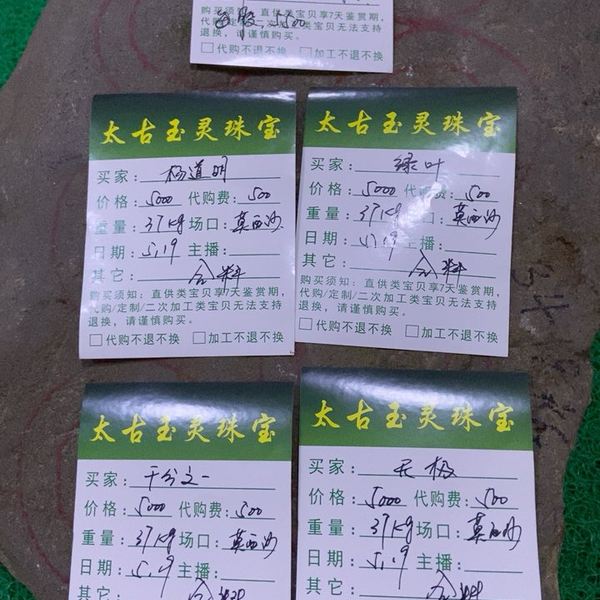 5500
□代购不退不换 □加工不退不换
太古玉灵珠宝
买家：杨道明
价格：5000 代购费：500
重量：37kg 场口：莫西沙
日期：5,19 主播：
其它：合料
购买须知：直供类宝贝享7天鉴赏期，
代购/定制/二次加工类宝贝无法支持
退换，请谨慎购买。
□代购不退不换 □加工不退不换
太古玉灵珠宝
买家：绿叶
价格：5000 代购费：500
重量：37kg 场口：莫西沙
日期：5,19 主播：
其它：合料
购买须知：直供类宝贝享7天鉴赏期，
代购/定制/二次加工类宝贝无法支持
退换，请谨慎购买。
□代购不退不换 □加工不退不换
太古玉灵珠宝
买家：千分之一
价格：5000 代购费：500
重量：37kg 场口：莫西沙
日期：5,19 主播：
其它：合料
太古玉灵珠宝
买家：无极
价格：5000 代购费：500
重量：37kg 场口：莫西沙
日期：5,19 主播：
其它：合料